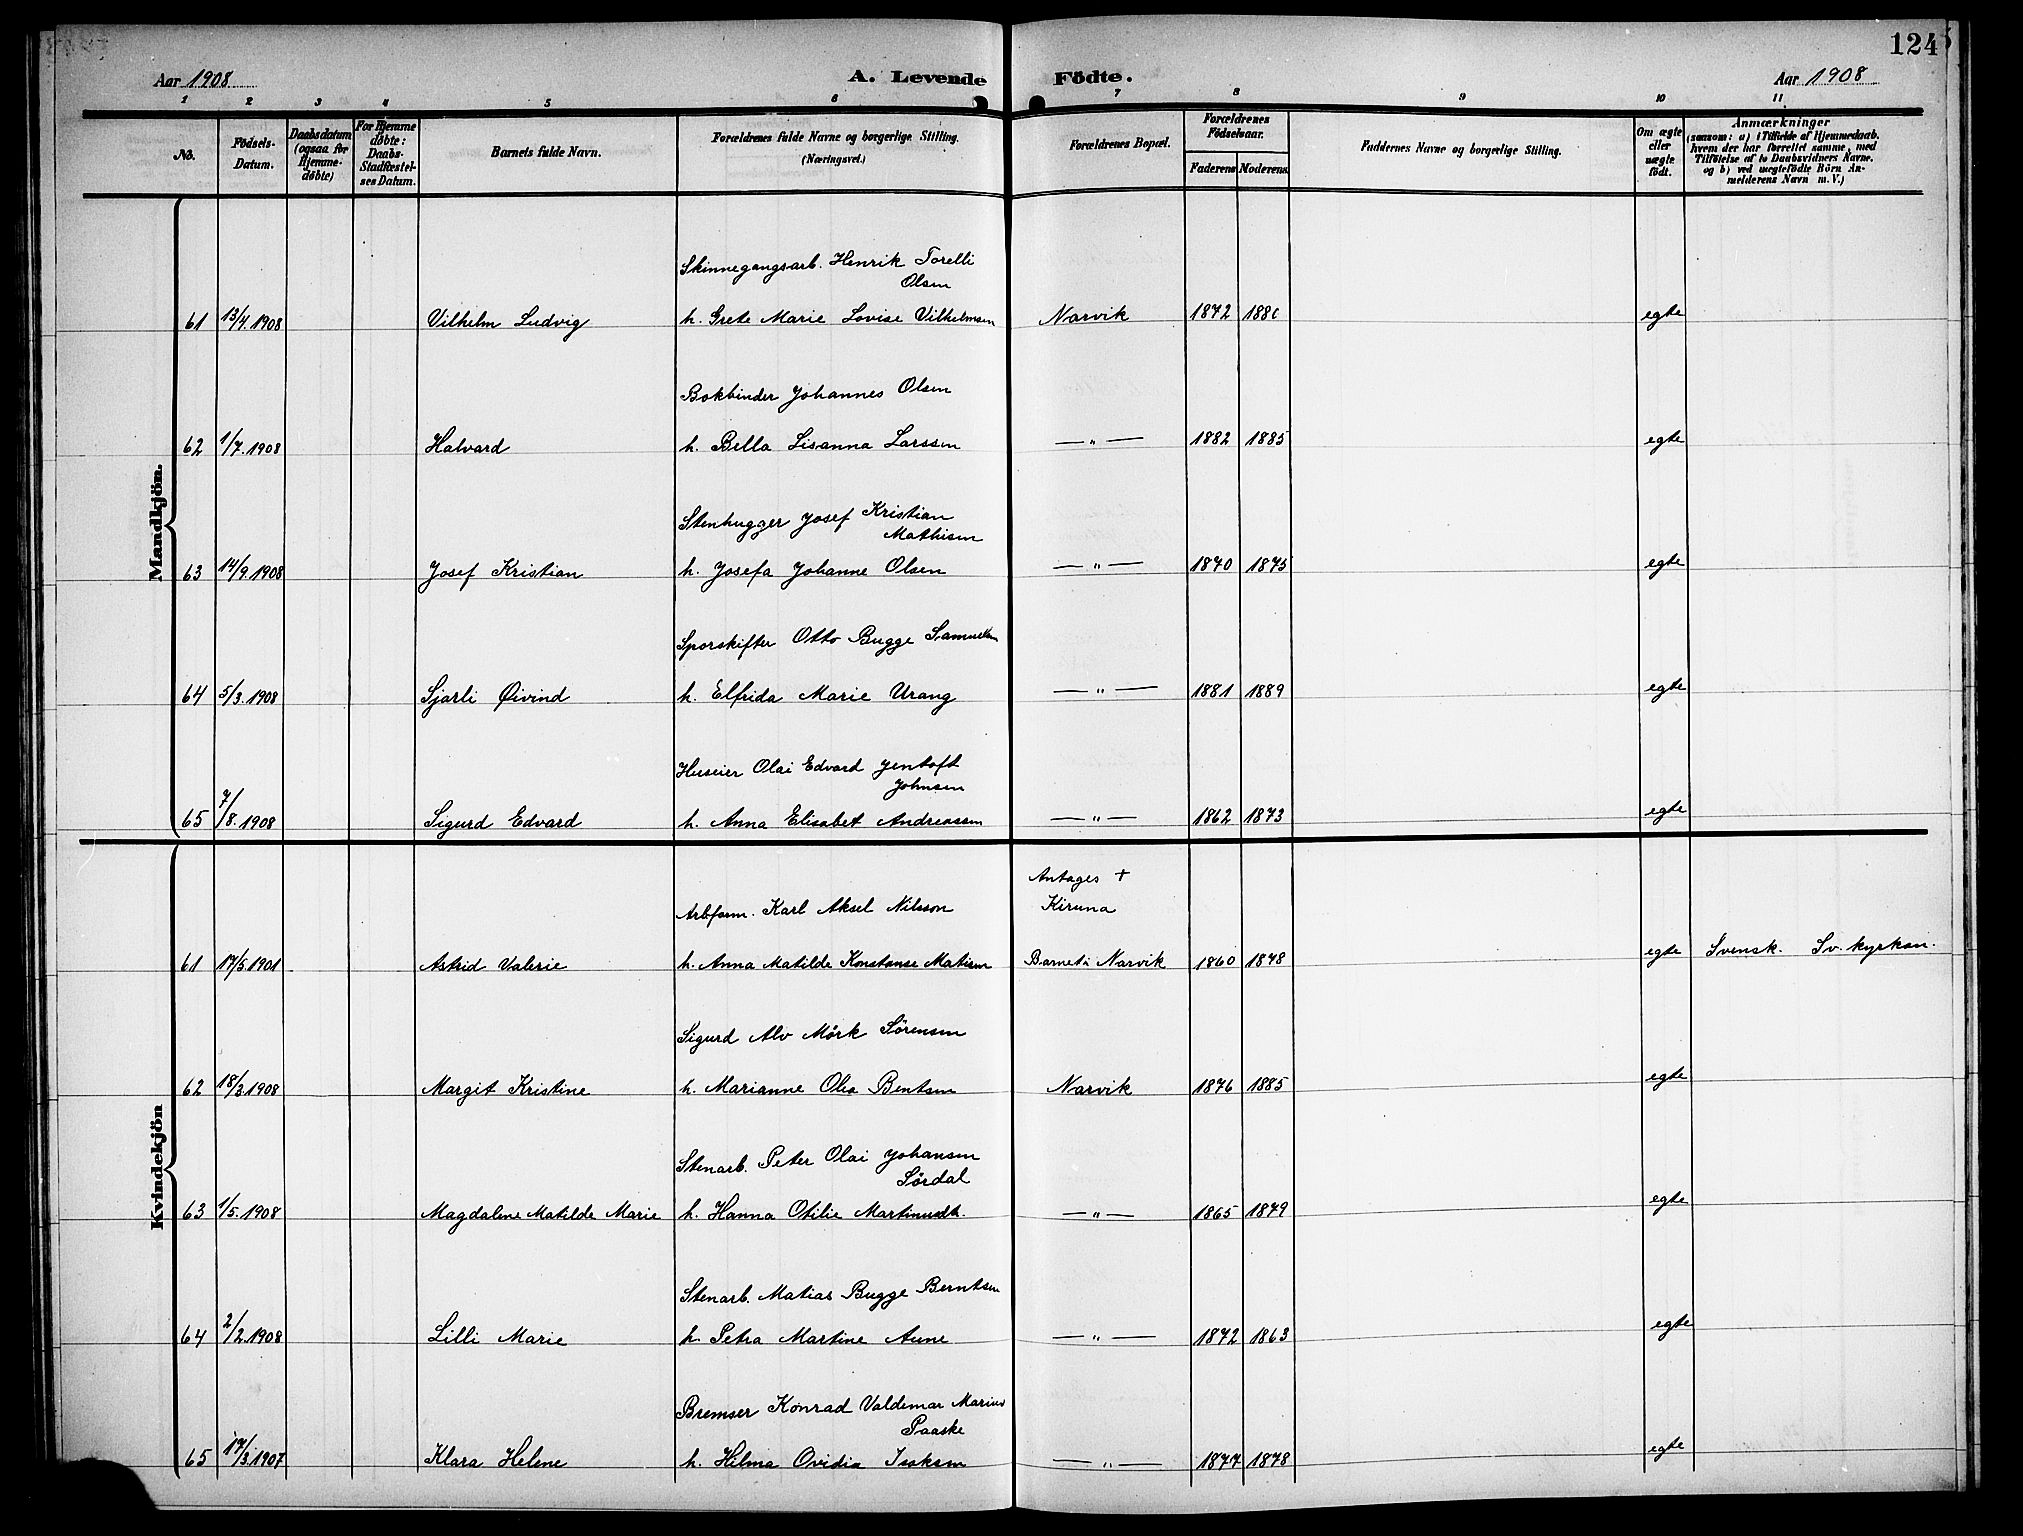 124
Aar 1908
A. Levende Födte.
Aar 1908
1 2 3 4 5 6 7 8 9 10 11
No.
Födsels-
Datum.
Daabsdatum
(ogsaa for
Hjemme-
döbte)
For Hjemme
döbte:
Daabs-
Stadfæstel-
ses Datum.
Barnets fulde Navn.
Forældrenes fulde Navne og borgerlige Stilling.
(Næringsvei.)
Forældrenes Bopæl.
Forældrenes
Födselsaar.
Faderens Moderens
Faddernes Navne og borgerlige Stilling.
Om ægte
eller
uægte
födt.
Anmærkninger
(saasom: a) i Tilfælde af Hjemmedaab.
hvem der har forrettet samme, med
Tilföielse af to Daabsvidners Navne.
og b) ved uægtefödte Börn An-
melderens Navn m. V.)
Mandkjön.
Skinnegangsarb. Henrik Torelli
Olsen
61 13/4 1908 Vilhelm Ludvig h. Grete Marie Lovise Vilhelmsen Narvik 1872 egte
Bokbinder Johannes Olsen
62 1/7. 1908 Halvard h. Bella Lisanna Larssen — „ — 1882 1885 egte
Stenhugger Josef Kristian
Mathisen
63 14/9. 1908 Josef Kristian h. Josefa Johanne Olsen — „ — 1870 1875 egte
Sporskifter Otto Bugge Samuelsen
64 5/3. 1908 Sjarli Øivind h. Elfrida Marie Urang — „ — 1881 1889 egte
Huseier Olai Edvard Jentoft
Johnsen
65 7/8. 1908 Sigurd Edvard h. Anna Elisabet Andreassen — „ — 1862 1873 egte
Kvindekjön
Antages +
Arbform. Karl Aksel Nilsson Kiruna
61 17/5. 1901 Astrid Valerie h. Anna Matilde Konstanse Matisen Barnet i Narvik 1860 1878 egte Svensk. Sv. kyrkan.
Sigurd Alv Mörk Sörensen
62 18/3. 1908 Margit Kristine h. Marianne Olea Bentsen Narvik 1876 1885 egte
Stenarb. Peter Olai Johansen
Sördal
63 1/5. 1908 Magdalene Matilde Marie h. Hanna Otilie Martinusdt. — „ — 1865 1879 egte
Stenarb. Matias Bugge Berntsen
64 2/2. 1908 Lilli Marie h. Petra Martine Aune — „ — 1872 1863 egte
Bremser Konrad Valdemar Marius
Paaske
65 17/3. 1907 Klara Helene h. Hilma Ovidia Isaksen — „ — 1877 1878 egte